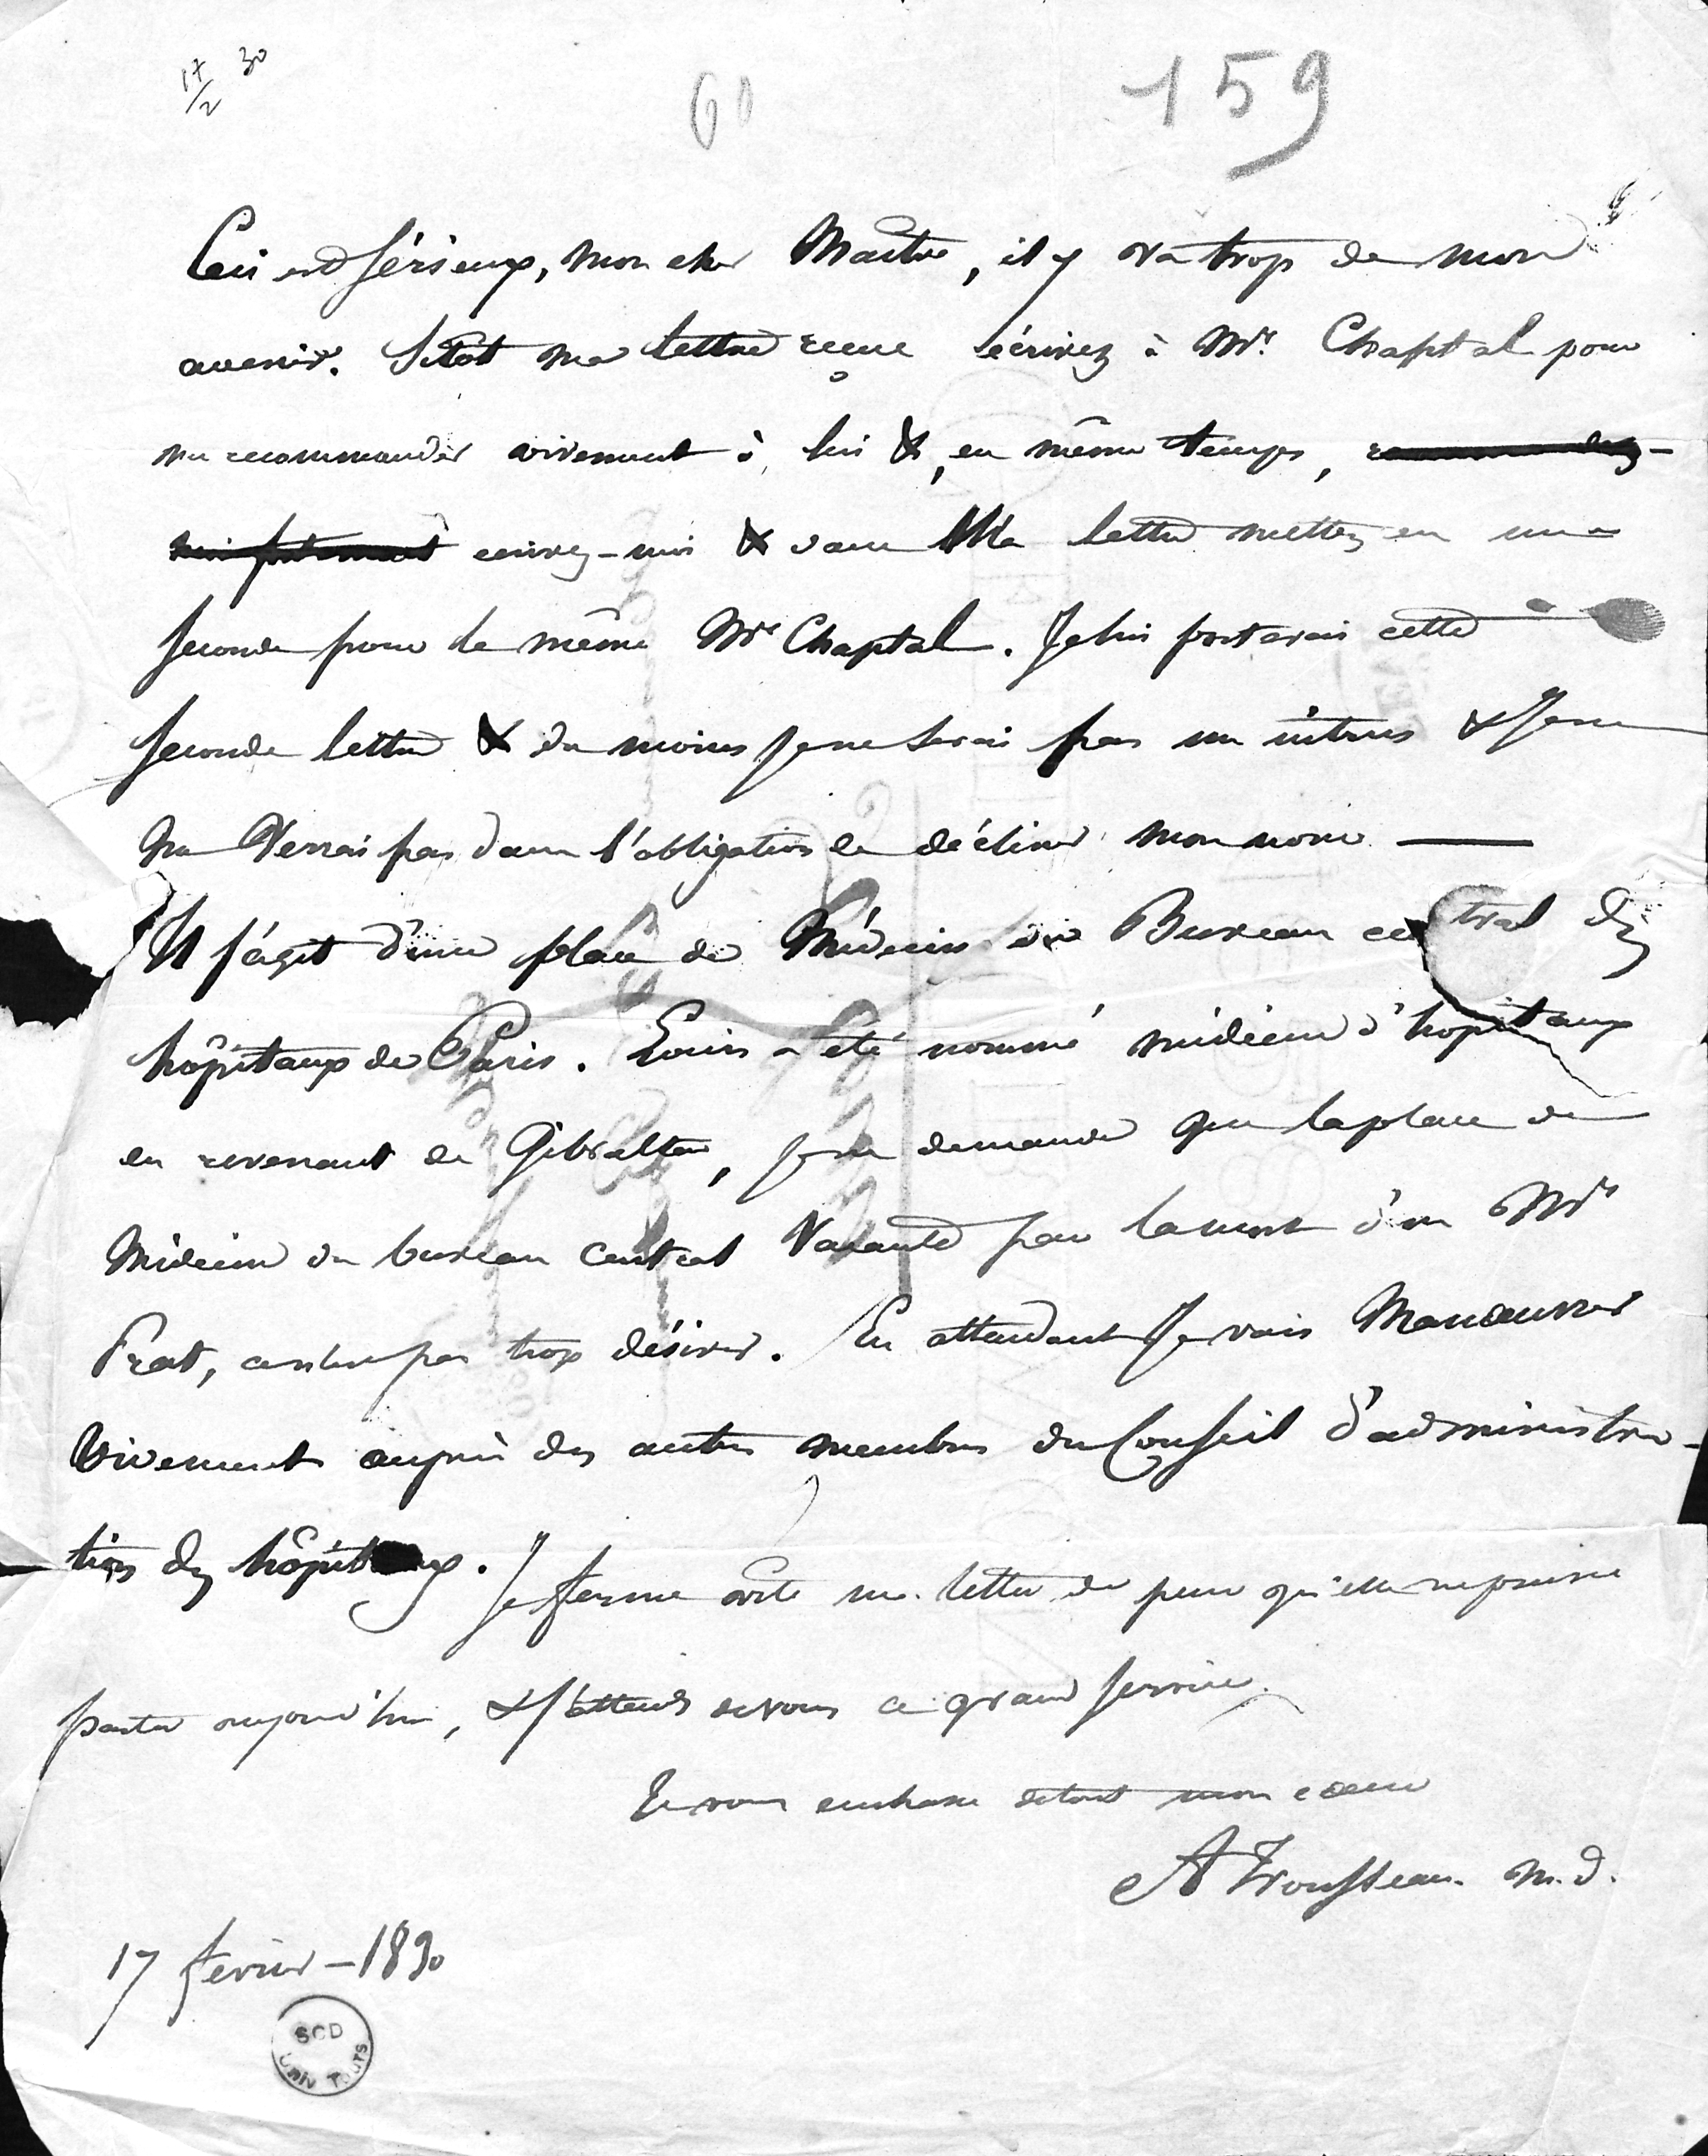 17/2 30
60
159
Ceci est sérieux, mon cher Maître, il y va trop de mon
avenir. Sitôt ma lettre reçue écrivez à Mr. Chaptal pour
me recommander vivement à lui &, en même temps, recommandez-
moi fortement ecrivez-moi & dans ma lettre mettez en une
seconde pour le même Mr Chaptal. Je lui porterai cette
seconde lettre & du moins je ne serai pas un intrus & je ne
me verrai pas dans l'obligation de décliner mon nom —
Il s'agit d'une place de Médecin du Bureau central des
hôpitaux de Paris. Louis a été nommé médecin d'hopitaux
en revenant de Gibraltar, je ne demande que la place de
Médecin du bureau central Vacante par la mort d'un Mr
Prat, ce n'est pas trop désirer. En attendant Je vais Manoeuvrer
Vivement auprès des autres membres du Conseil d'administra-
tion des hôpitaux. Je ferme vite ma lettre de peur qu'elle ne puisse
partir aujourd'hui, & j'attends de vous ce grand service.
Je vous embrasse de tout mon coeur
A Trousseau. m.d.
17 fevrier – 1830
SCD
Univ Tours